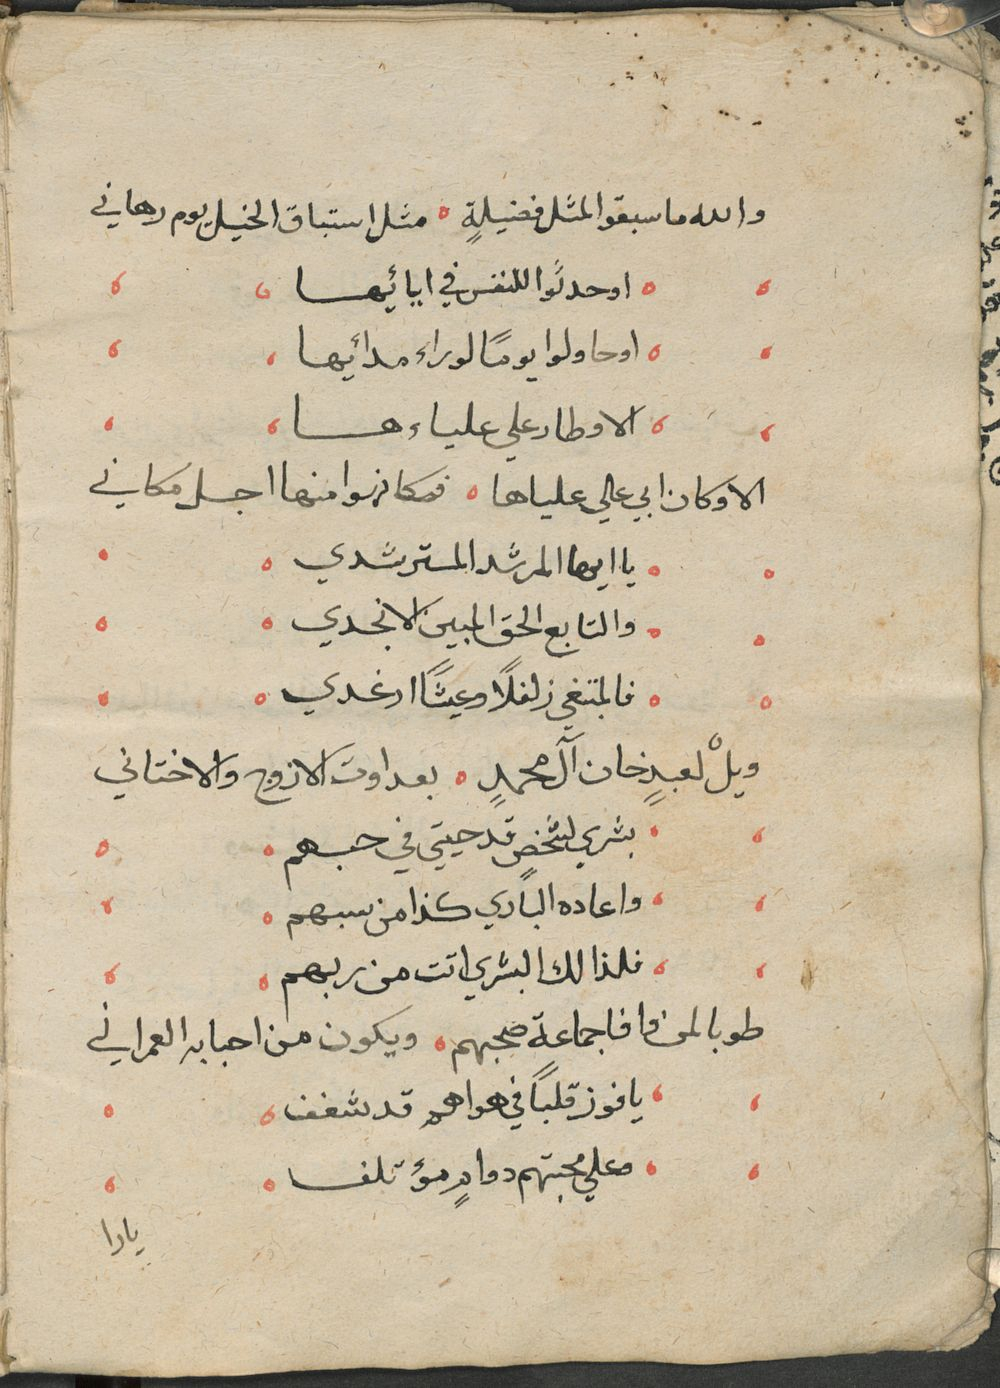 والله ما سبقوا لمثل فضيلةٍ ه مثل استباق الخيل يوم رهاني
او حدثوا للنفس في ابائيها
او حاولوا يومًا لوراء مدائيها
الا وطار علي علياءها
الا وكان ابي علي علياها ه فمكانهوا منها اجل مكاني
يا ايها المرشد المسترشدي
والتابع الحق المبين الانجدي
فالمبتغي زلفلاً وعيشًا ارغدي
ويلٌ لعبدٍ خان آل محمدٍ ه بعداوت الازوج والاختاني
بشري لشخصٍ قد حيتي في حبهم
واعاده الباري كذا من سببهم
فلذالك البشري اتت من ربهم
طوبا لمن وافا جماعة صحبهم ه ويكون من احبابه العمراني
يا فوز قلبًا في هواهم قد شغف
وعلي محبتهم دوامٍ مؤتلفا
يارا